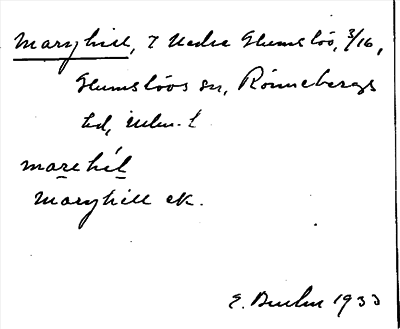 Maryhill, 7 Nedre Glumslöv, 3/16,
Glumslövs sn, Rönnebergs
hd, Mlm. l.
marehil
Maryhill ek.
E. 1933